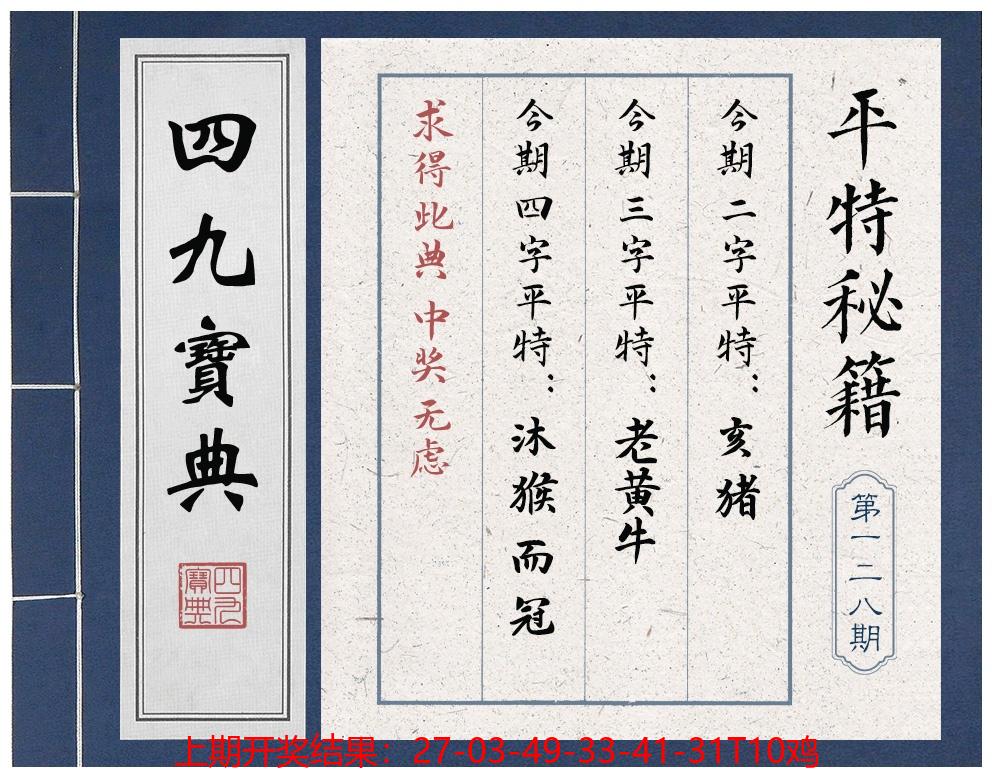 平特秘籍
第一二八期
今期二字平特：亥猪
今期三字平特：老黄牛
今期四字平特：沐猴而冠
求得此典 中奖无虑
四九寶典
四九寶典
上期开奖结果：27-03-49-33-41-31T10鸡